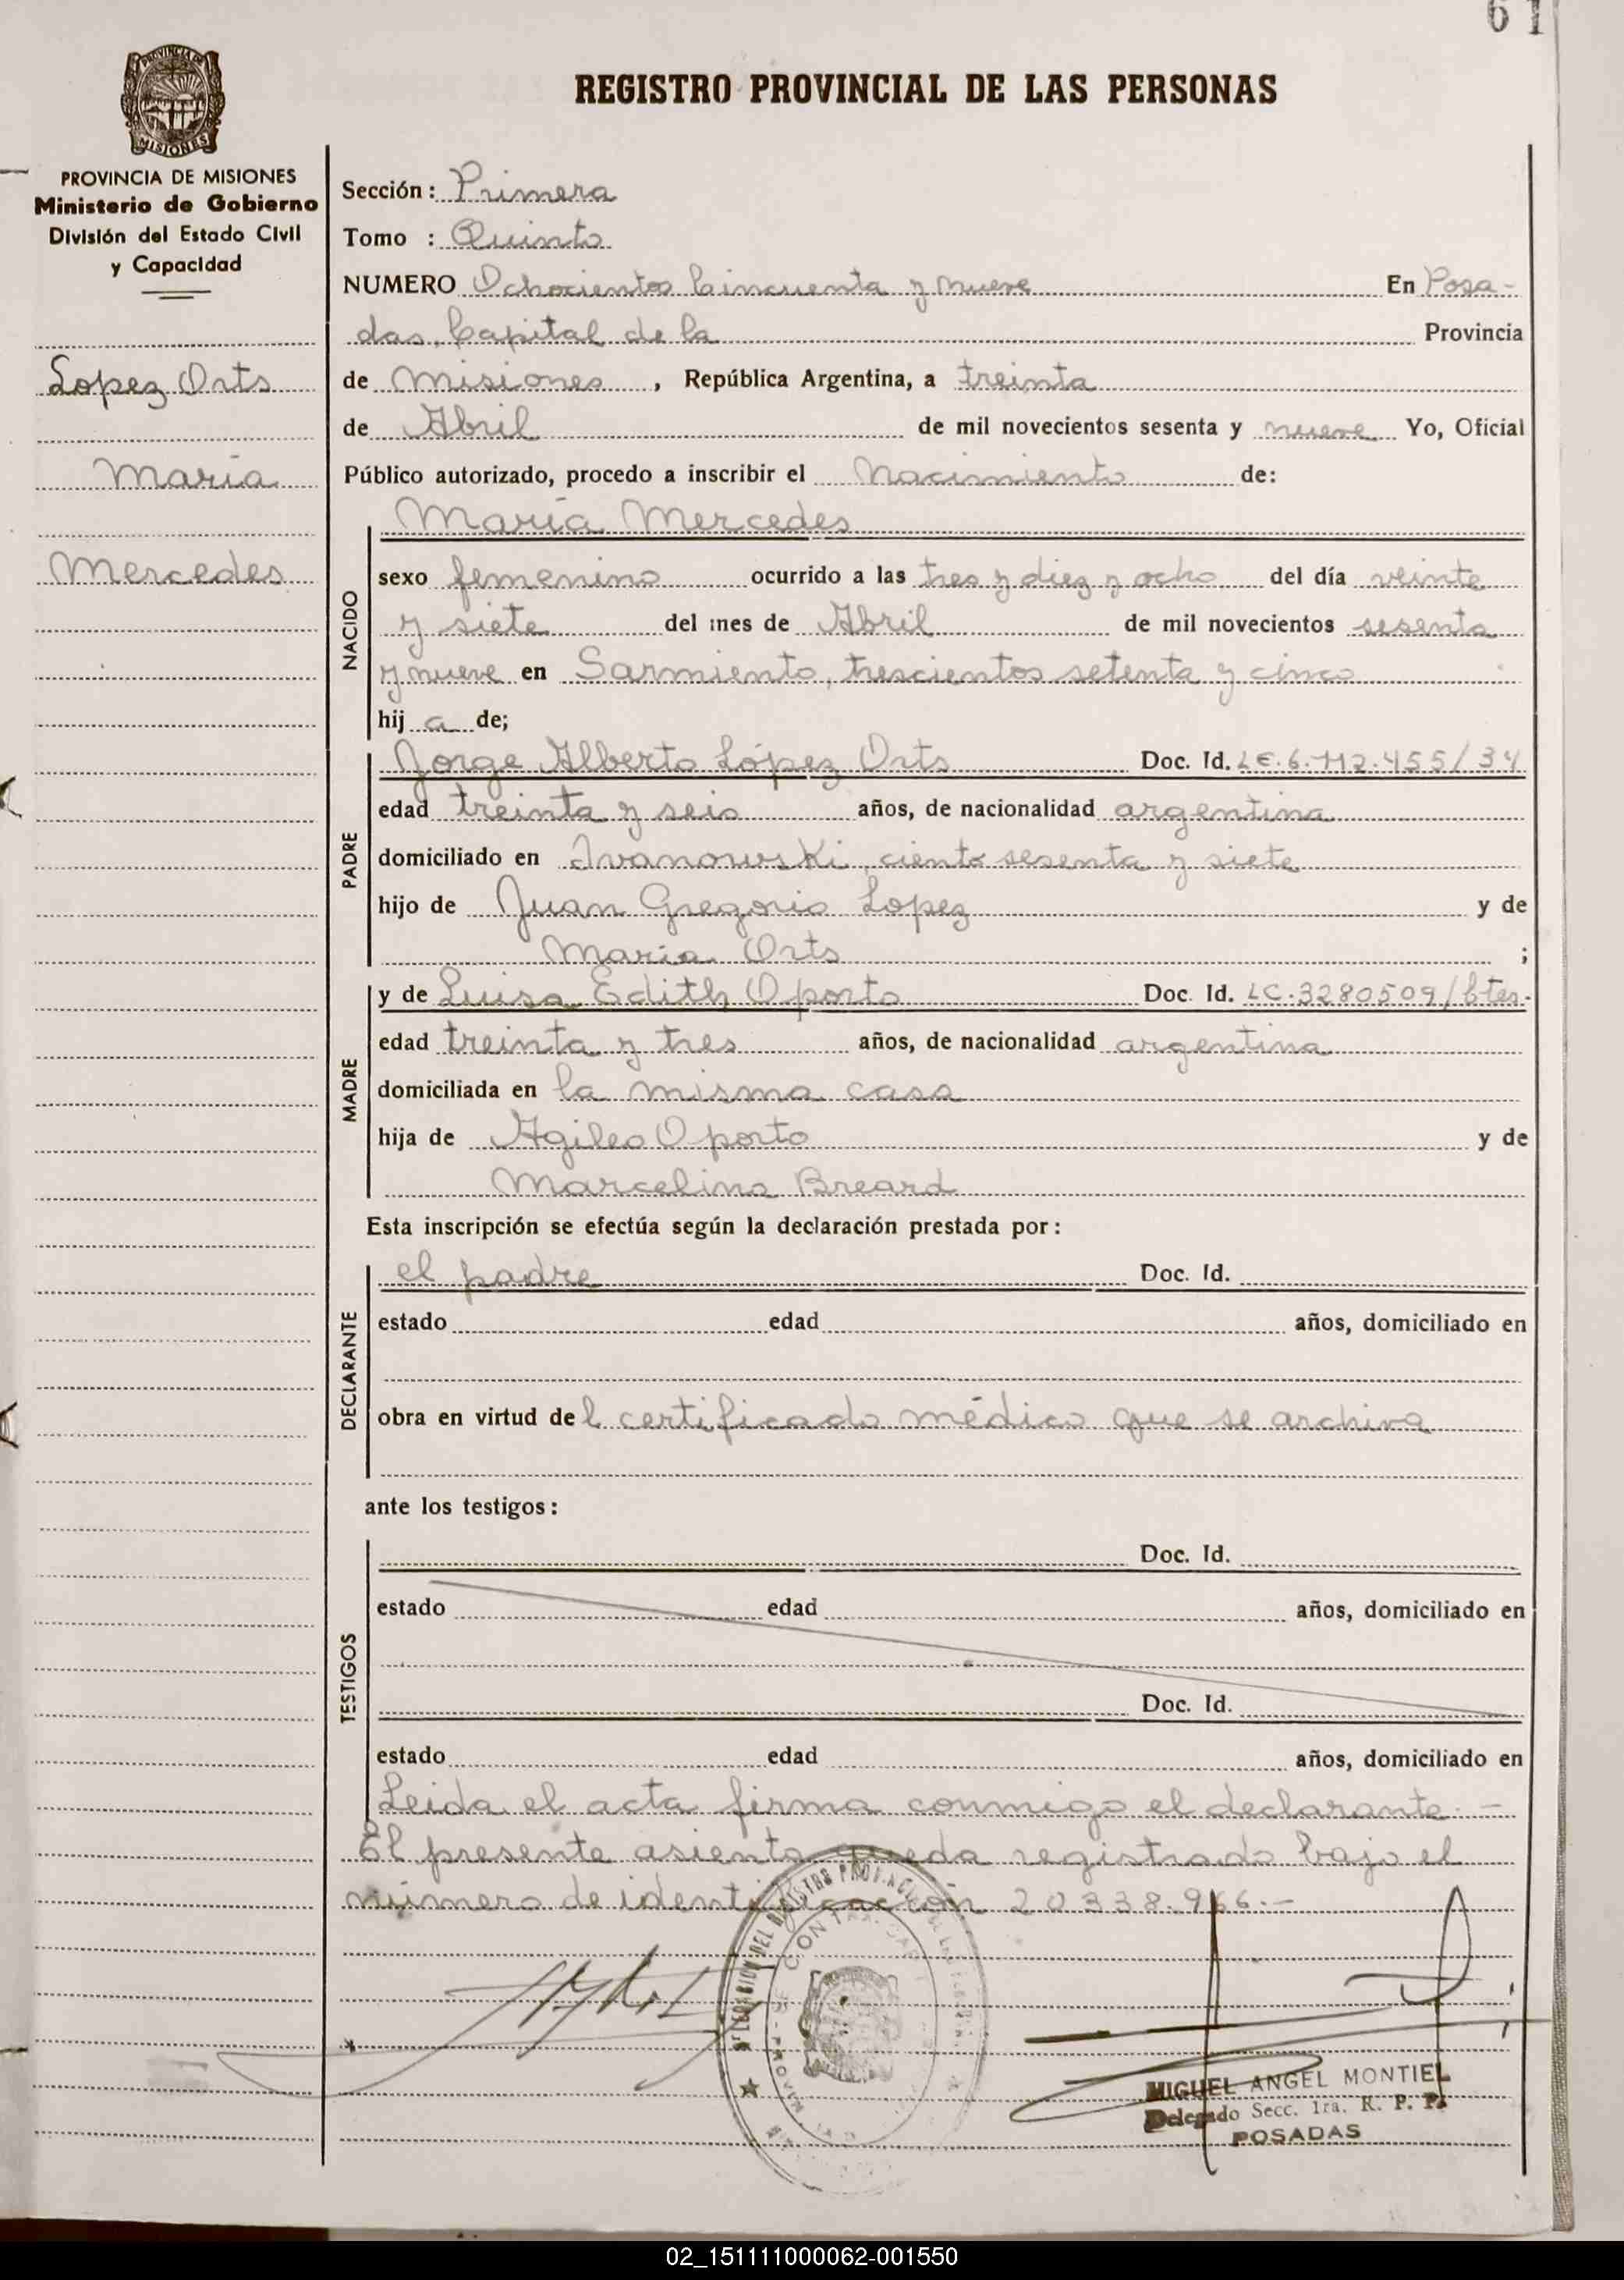 61
REGISTRO PROVINCIAL DE LAS PERSONAS
MISIONES
PROVINCIA DE MISIONES
Ministerio de Gobierno
División del Estado Civil
y Capacidad
Lopez Orts
María
Mercedes
Sección: Primera
Tomo : Quinto
NUMERO Ochocientos Cincuenta y nueve En Posa-
das, Capital de la Provincia
de Misiones, República Argentina, a treinta
de Abril de mil novecientos sesenta y nueve Yo, Oficial
Público autorizado, procedo a inscribir el Nacimiento de:
NACIDO
María Mercedes
sexo femenino ocurrido a las tres y diez y ocho del día veinte
y siete del mes de Abril de mil novecientos sesenta
y nueve en Sarmiento, trescientos setenta y cinco
hij a de;
PADRE
Jorge Alberto López Orts Doc. Id. LE.6.112.455/34
edad treinta y seis años, de nacionalidad argentina
domiciliado en Ivanowski, ciento sesenta y siete
hijo de Juan Gregorio Lopez y de
María Orts ;
MADRE
y de Luisa Edith Oporto Doc. Id. LC.3280509/Ctes.-
edad treinta y tres años, de nacionalidad argentina
domiciliada en la misma casa
hija de Agileo Oporto y de
Marcelina Breard
Esta inscripción se efectúa según la declaración prestada por:
DECLARANTE
el padre Doc. Id.
estado edad años, domiciliado en
obra en virtud del certificado médico que se archiva
ante los testigos:
TESTIGOS
Doc. Id.
estado edad años, domiciliado en
Doc. Id.
estado edad años, domiciliado en
Leida el acta firma conmigo el declarante.-
El presente asiento queda registrado bajo el
número de identificación 20338.966.-
MIGUEL ANGEL MONTIEL
Delegado Secc. 1ra. R. P. P.
POSADAS
02_151111000062-001550